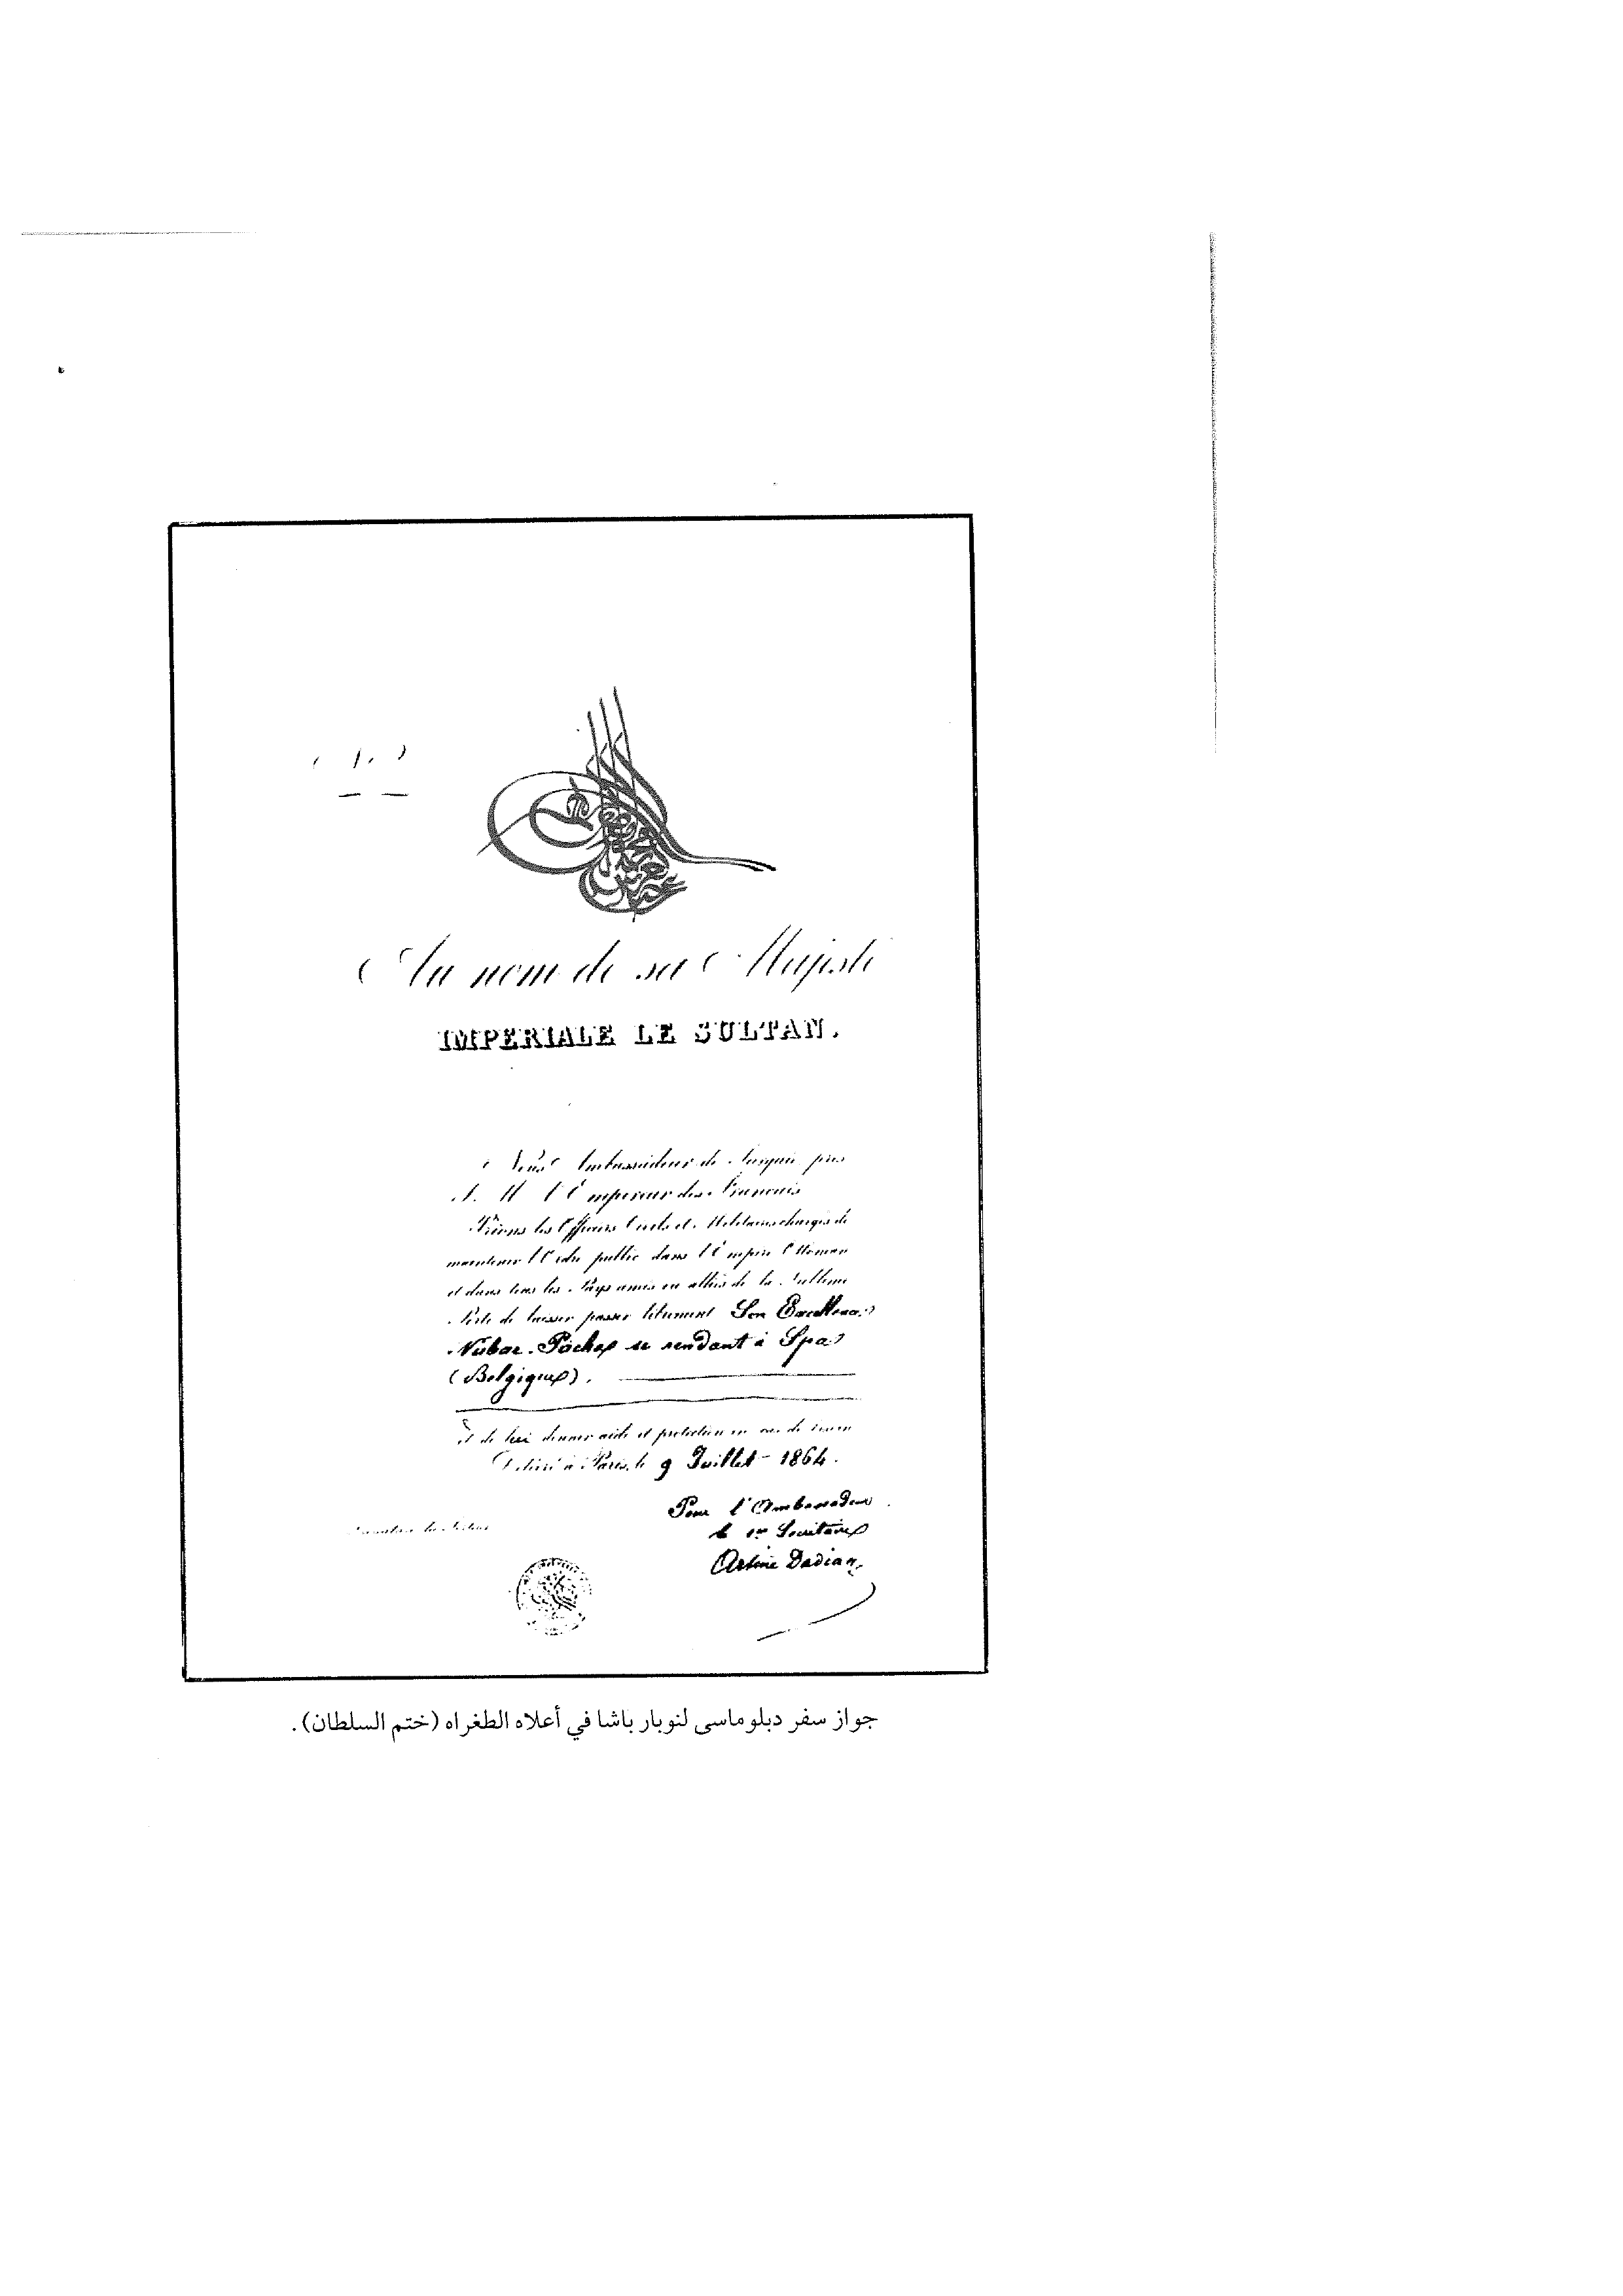 Au nom de sa Majesté
IMPERIALE LE SULTAN.
Nous Ambassadeur de Turquie près
S. M. l'Empereur des Français
Prions les Officiers Civils et Militaires chargés de
maintenir l'Ordre public dans l'Empire Ottoman
et dans tous les Pays amis ou alliés de la Sublime
Porte de laisser passer librement Son Excellence
Nubar Pacha se rendant à Spa
(Belgique).
et de lui donner aide et protection en cas de besoin
Délivré à Paris, le 9 Juillet - 1864.
Pour l'Ambassadeur
le 1er Secrétaire
Artine Dadian
جواز سفر دبلوماسى لنوبار باشا في أعلاه الطغراه (ختم السلطان).